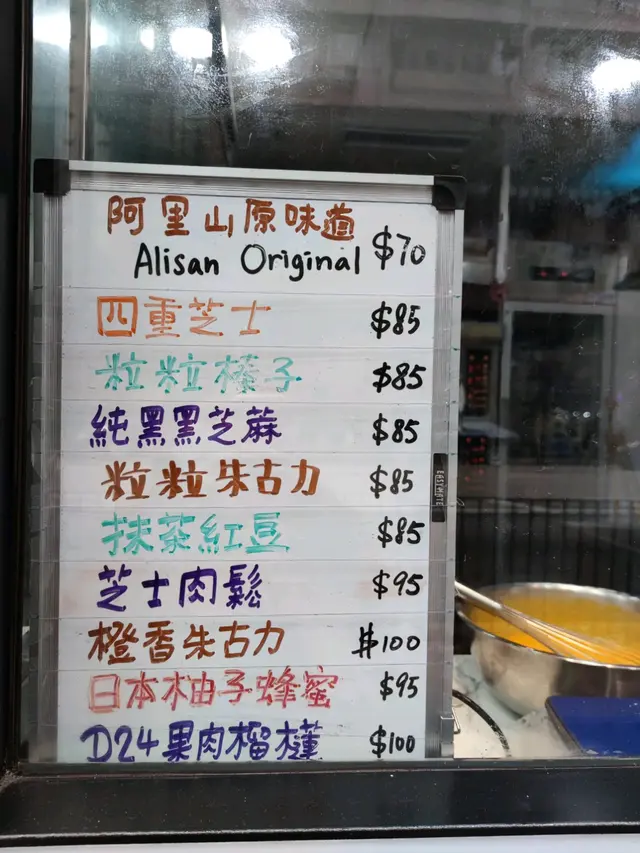 阿里山原味道
Alisan Original $70
四重芝士 $85
粒粒榛子 $85
純黑黑芝蔴 $85
粒粒朱古力 $85
抹茶紅豆 $85
芝士肉鬆 $95
橙香朱古力 $100
日本柚子蜂蜜 $95
D24果肉榴槤 $100
EASYMATE